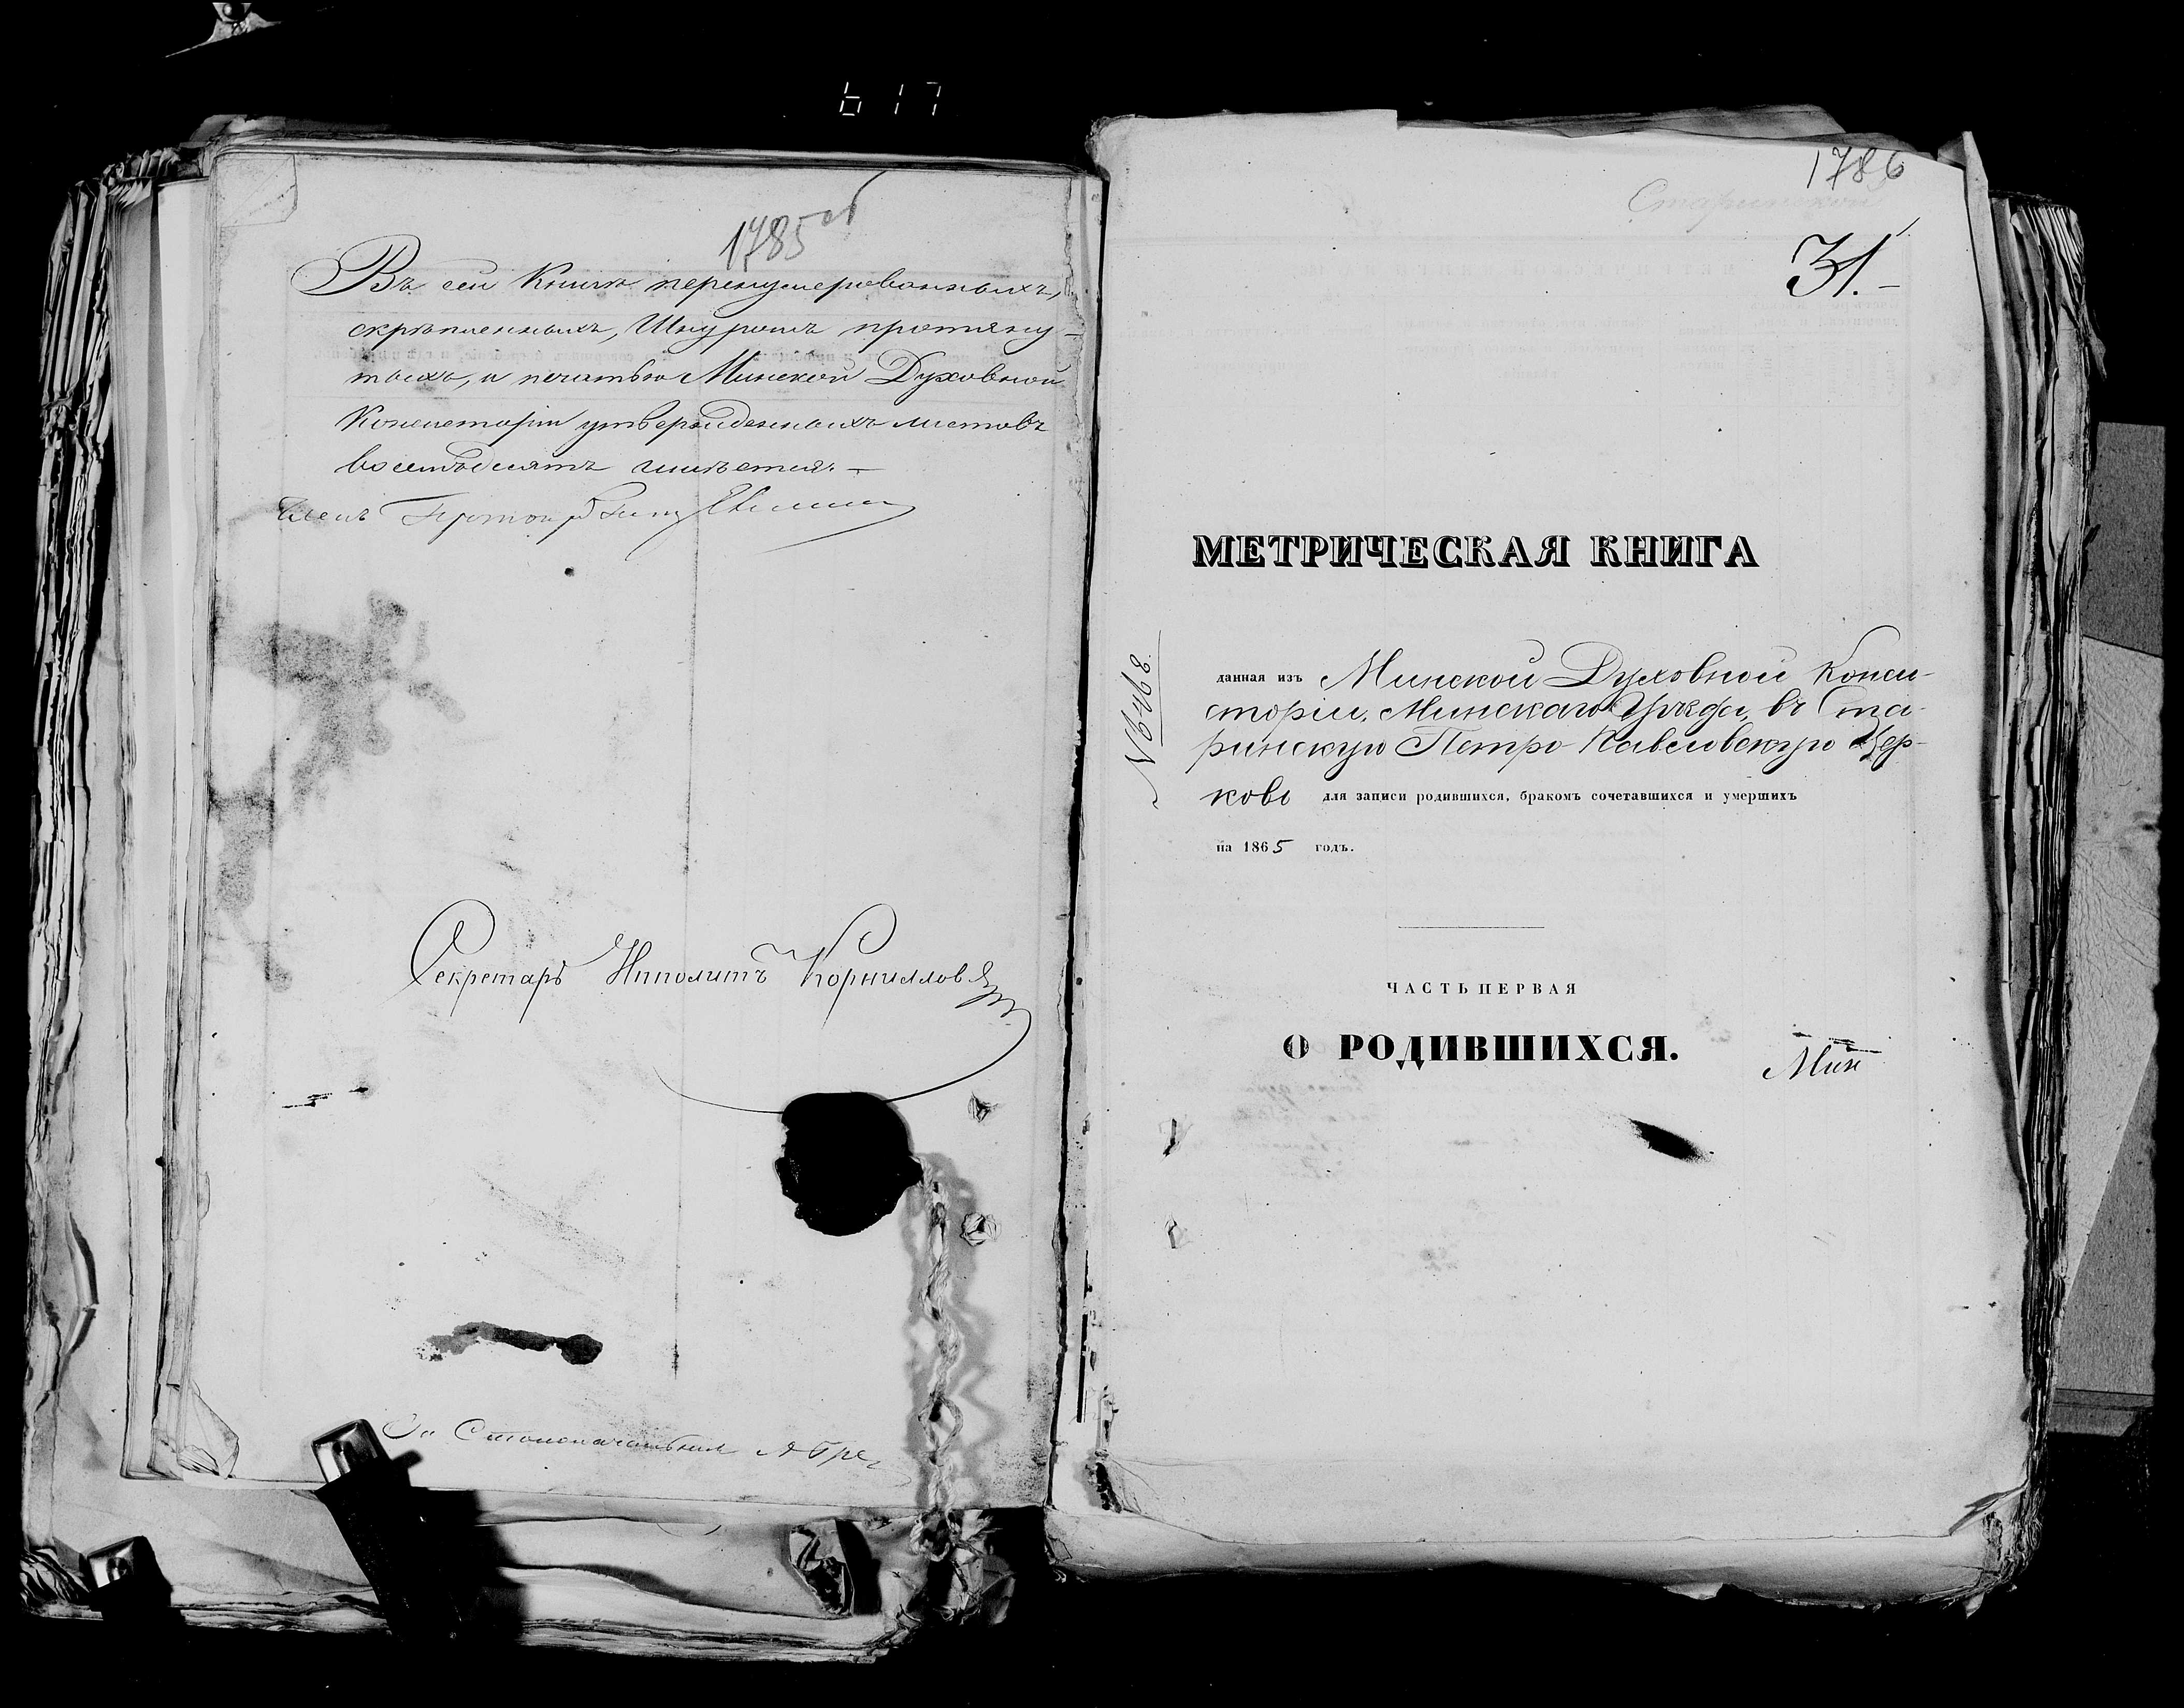 617
1785 об
Въ сей Книгѣ перенумерованныхъ,
скрѣпленныхъ, Шнуромъ протяну-
тыхъ, и печатью Минской Духовной
Консисторіи утвержденныхъ листовъ
восемьдесятъ имѣется. —
Членъ
Секретарь Ипполитъ Корнилловъ
Столоначальника
1786
Старинской
31. —
МЕТРИЧЕСКАЯ КНИГА
№ 6468.
данная изъ Минской Духовной Конси-
сторіи, Минскаго Уѣзда, въ Ста-
ринскую Петро-Павловскую Цер-
ковь для записи родившихся, бракомъ сочетавшихся и умершихъ
на 1865 годъ.
ЧАСТЬ ПЕРВАЯ
О РОДИВШИХСЯ.
Мин